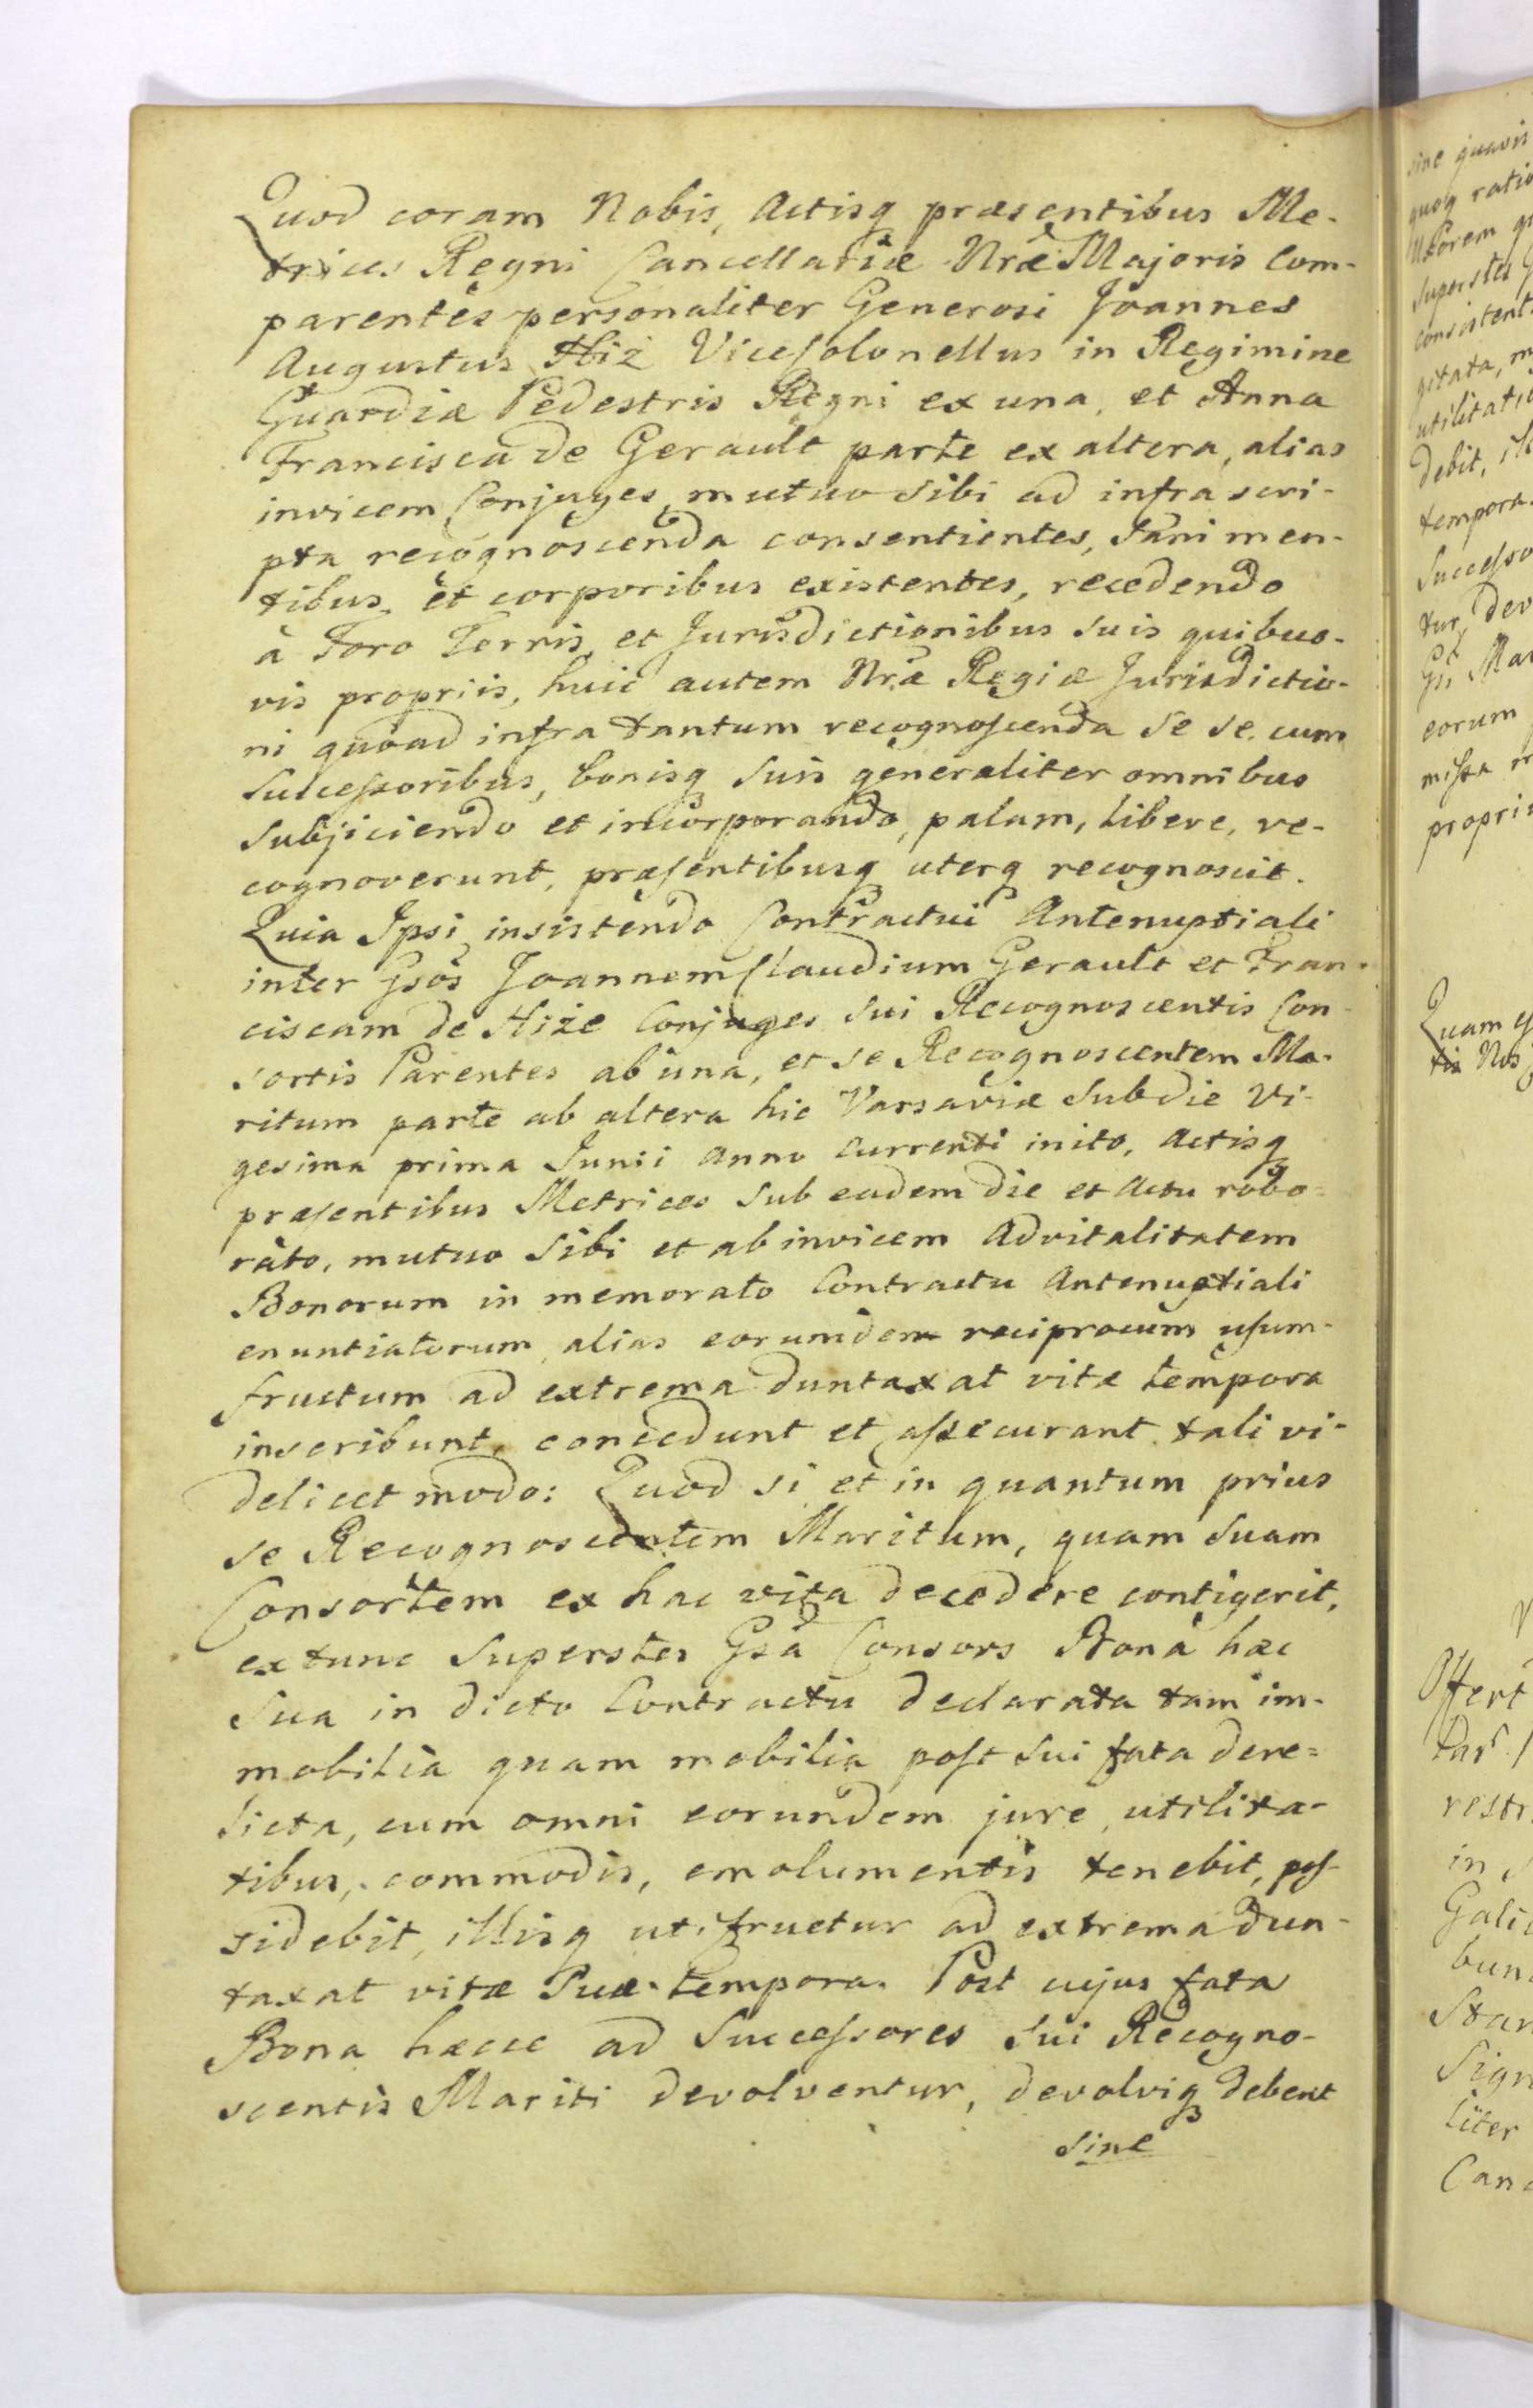 Quod coram Nobis, Actisq́ præsentibus Me-
trices Regni Cancellariæ Nræ Majoris Com-
parentes personaliter Generosi Joannes
Augustus Hiż Vicecolonellus in Regimine
Guardiæ Pedestris Regni ex una, et Anna
Francisca de Gerault parte ex altera, alias
invicem Conjuges, mutuo sibi ad infrascri-
pta recognoscenda consentientes, sani men-
tibus, et corporibus existentes, recedendo
à Foro Terris, et Jurisdictionibus suis quibus-
vis propriis, huic autem Nræ Regiæ Jurisdictio-
ni quoad infra tantum recognoscenda se se cum
Successoribus, bonisq́ suis generaliter omnibus
subjiciendo et incorporando, palam, libere, re-
cognoverunt, præsentibusq́ uterq́ recognoscit.
Quia Ipsi insistendo Contractui Antenuptiali
inter Gsos Joannem Claudium Gerault et Fran-
ciscam de Hiże Conjuges sui Recognoscentis Con-
sortis Parentes ab una, et se Recognoscentem Ma-
ritum parte ab altera hic Varsaviæ sub die vi-
gesima prima Junii anno currenti inito, Actisq́
præsentibus Metrices sub eadem die et actu robo=
rato, mutuo sibi et ab invicem Advitalitatem
Bonorum in memorato Contractu Antenuptiali
enuntiatorum, alias eorumdem reciprocum usum-
fructum ad extrema duntaxat vitæ tempora
inscribunt, concedunt et assecurant tali vi-
delicet modo: Quod si et in quantum prius
se Recognoscentem Maritum, quam suam
Consortem ex hac vita decedere contigerit,
ex tunc Superstes Gsa Consors Bona hæc
sua in dicto Contractu declarata tam im-
mobilia quam mobilia post sui fata dere=
licta, cum omni eorundem jure, utilita-
tibus, commodis, emolumentis tenebit, pos-
sidebit, illisq́ utifruetur ad extrema dun-
taxat vitæ suæ tempora. Post cujus fata
Bona hæcce ad Successores sui Recogno-
scentis Mariti devolventur, devolviq́ debent
sine
sine quavis
quoq́ ratio
Uxorem
superstes
consistent
gitata, m
utilitati
debit,
tempora.
Successo
tur, dev
Gsi Mar
eorum
missa
propri
Quam
Nos
Offert
restr
in
Gali
bun
Stan
Sign
liter
Canc